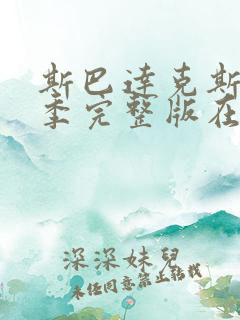 斯巴达克斯
季完整版在
深深妹兒
未任同意禁止转载